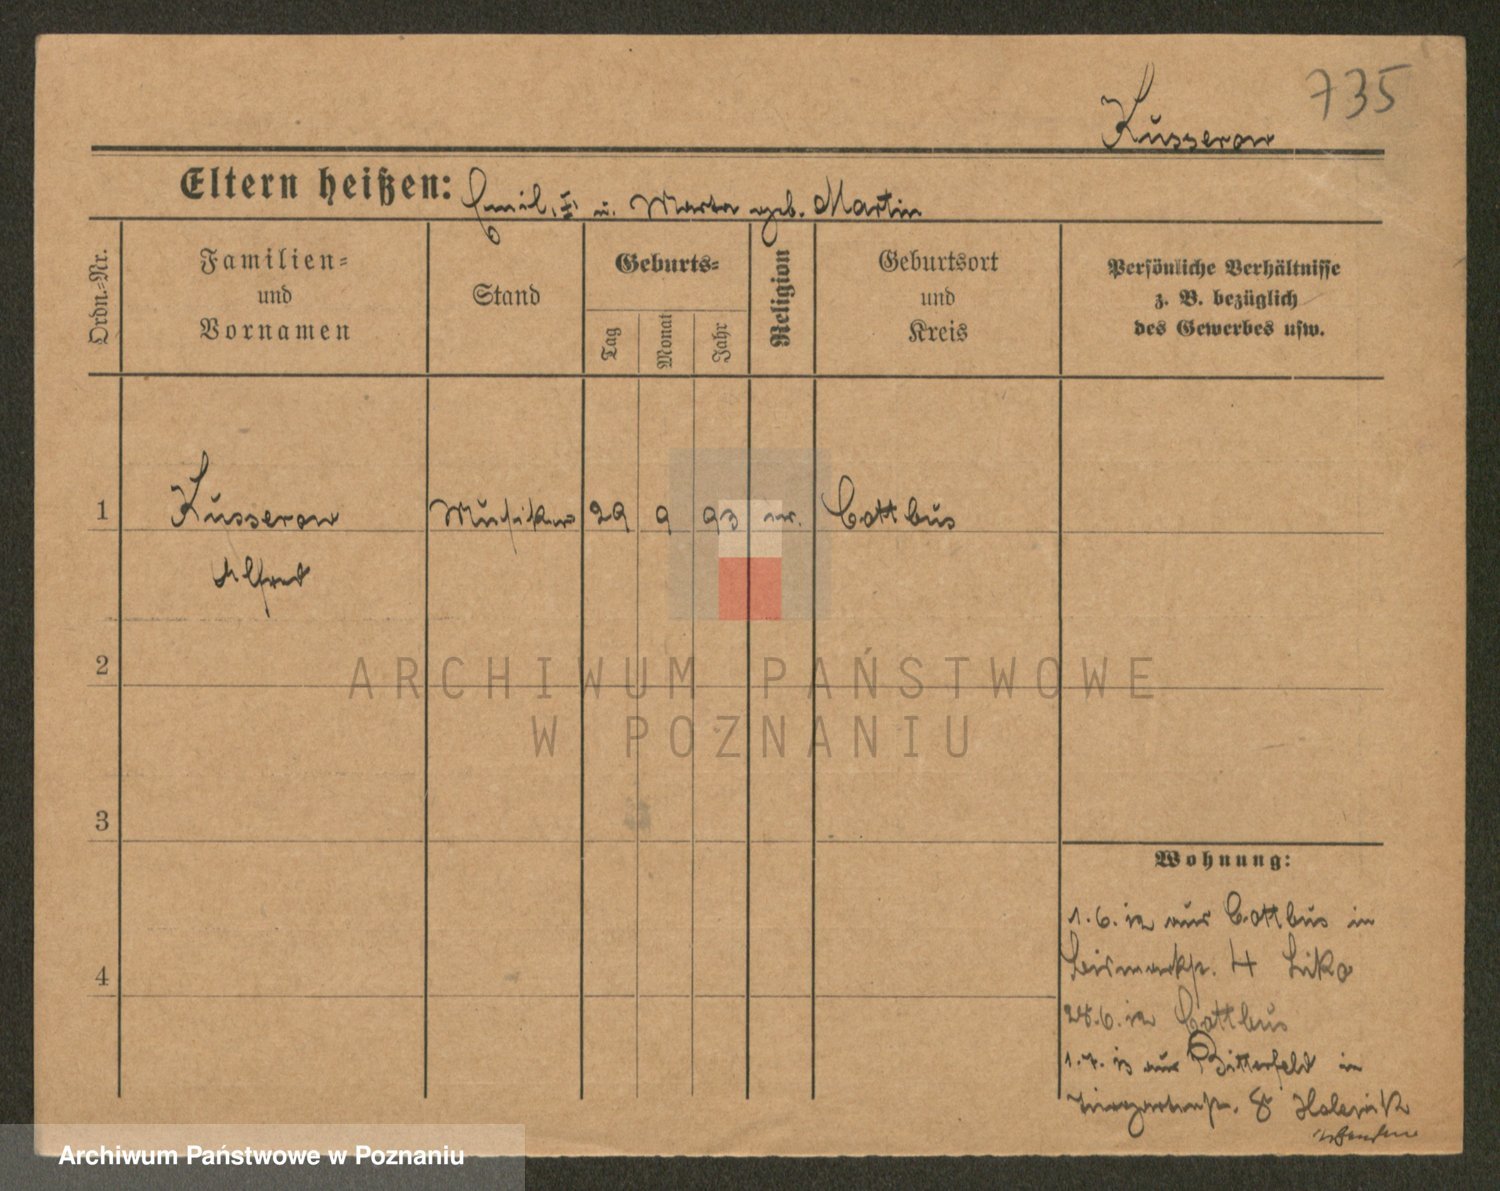 735
Kusserow
Eltern heißen: Emil, u. Marta geb. Martin
Ordn.-Nr.
Familien-
und
Vornamen
Stand
Geburts-
Tag
Monat
Jahr
Religion
Geburtsort
und
Kreis
Persönliche Verhältnisse
z. B. bezüglich
des Gewerbes usw.
1 Kusserow Musiker 29 9 93 ev. Cottbus
Alfred
ARCHIWUM PAŃSTWOWE
W POZNANIU
2
3
4
Wohnung:
1.6.12 aus Cottbus in
Bismarckstr. 4
28.6.12 Cottbus
1.7.13 aus Bitterfeld in
Tiergartenstr. 8
Archiwum Państwowe w Poznaniu